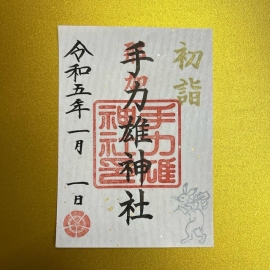 初詣
手力雄神社
手力雄
神社印
令和五年一月一日